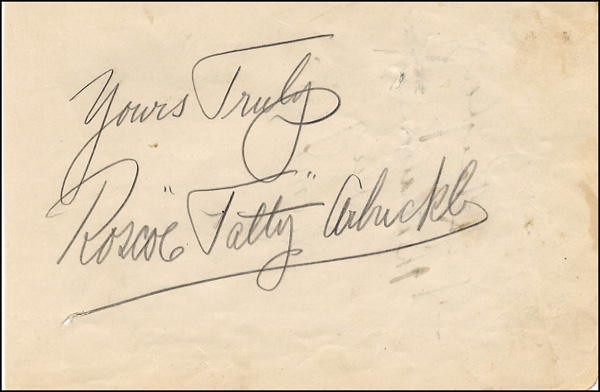 Yours Truly
Roscoe "Fatty" Arbuckle